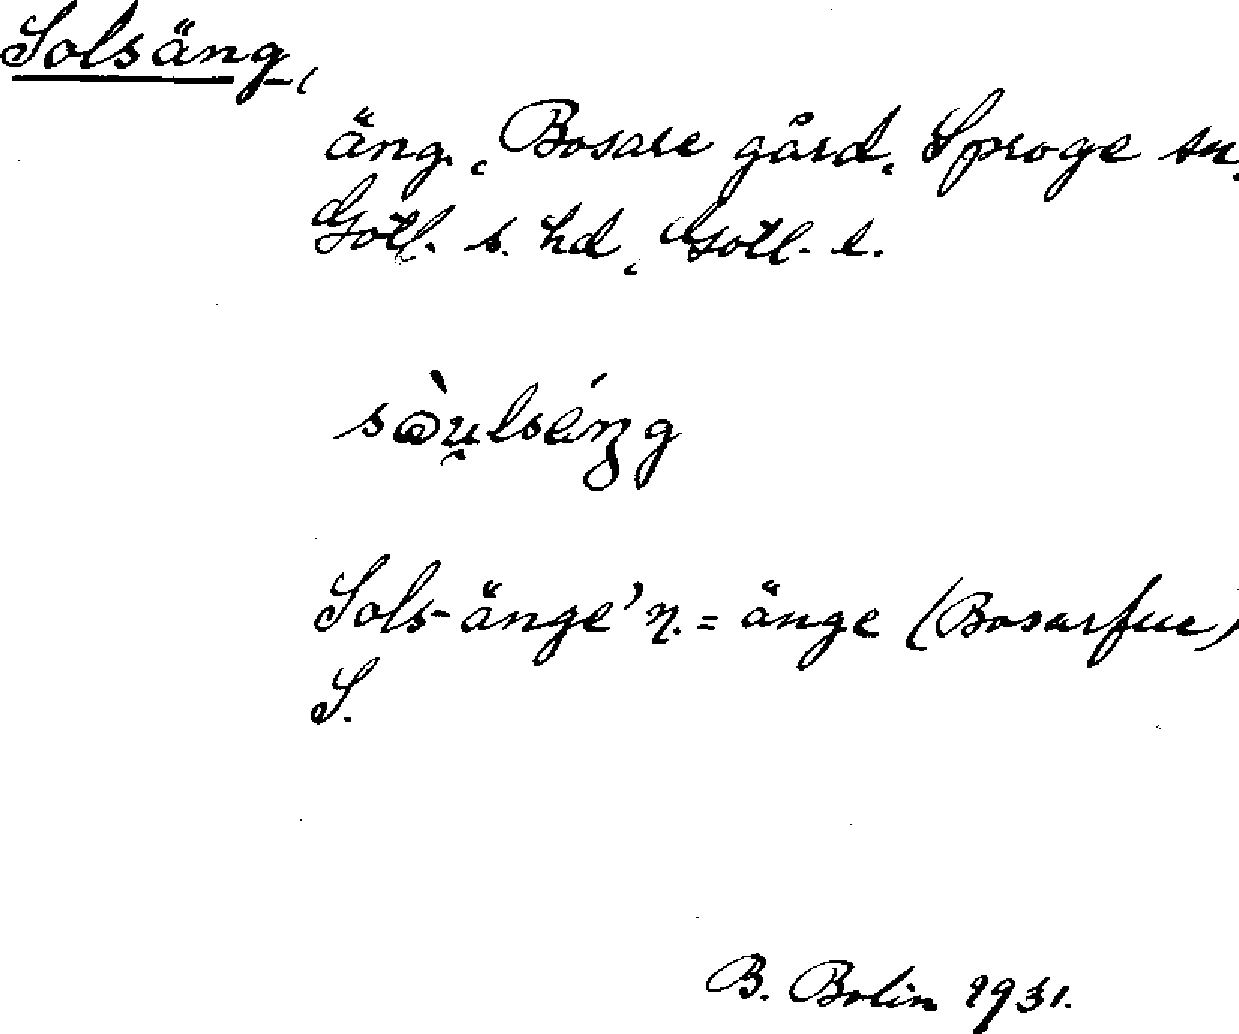 Solsäng,
äng, Bosare gård, Sproge sn,
Gotl. s. hd, Gotl. l.
Sols-änge' n. = änge (Bosarfve)
S.
B. Bolin 1931.